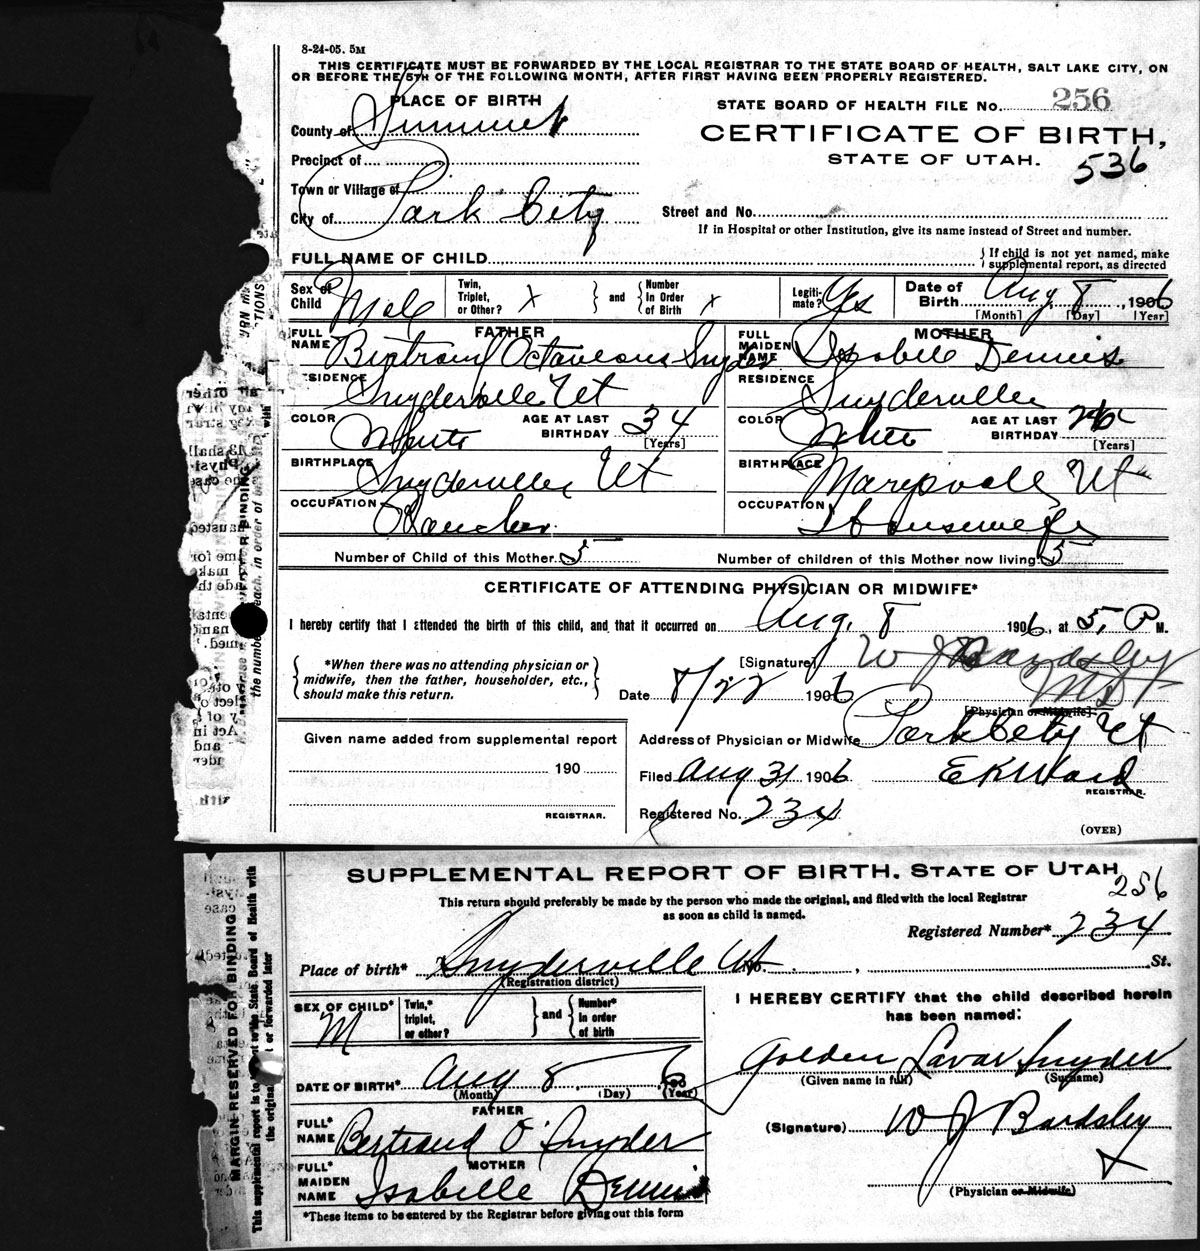 8-24-05. 5M
THIS CERTIFICATE MUST BE FORWARDED BY THE LOCAL REGISTRAR TO THE STATE BOARD OF HEALTH, SALT LAKE CITY, ON
OR BEFORE THE 5TH OF THE FOLLOWING MONTH, AFTER FIRST HAVING BEEN PROPERLY REGISTERED.
PLACE OF BIRTH
STATE BOARD OF HEALTH FILE No. 256
County of Summit
CERTIFICATE OF BIRTH,
STATE OF UTAH.
536
Precinct of
Town or Village of
City of Park City
Street and No.
If in Hospital or other Institution, give its name instead of Street and number.
FULL NAME OF CHILD
{ If child is not yet named, make
supplemental report, as directed
Sex of Child Male
Twin, Triplet, or Other? x } and { Number In Order of Birth x
Legitimate? Yes
Date of Birth Aug 8, 1906
[Month] [Day] [Year]
FATHER
FULL NAME Bertram Octaveous Snyder
MOTHER
FULL MAIDEN NAME Isabelle Dennis
RESIDENCE Snyderville Ut
RESIDENCE Snyderville
COLOR White AGE AT LAST BIRTHDAY 34 [Years]
COLOR White AGE AT LAST BIRTHDAY 26 [Years]
BIRTHPLACE Snyderville Ut
BIRTHPLACE Marysvale Ut
OCCUPATION Rancher
OCCUPATION Housewife
Number of Child of this Mother. 5
Number of children of this Mother now living. 5
CERTIFICATE OF ATTENDING PHYSICIAN OR MIDWIFE*
I hereby certify that I attended the birth of this child, and that it occurred on Aug. 8 1906, at 5, P M.
{ *When there was no attending physician or
midwife, then the father, householder, etc.,
should make this return. }
[Signature] W J Bardsley
MD
Date 8/22 1906
[Physician or Midwife]
Address of Physician or Midwife Park City Ut
Given name added from supplemental report
190
REGISTRAR.
Filed Aug 31 1906 E K Ward
REGISTRAR.
Registered No. 234
(OVER)
SUPPLEMENTAL REPORT OF BIRTH. STATE OF UTAH
256
This return should preferably be made by the person who made the original, and filed with the local Registrar
as soon as child is named.
Registered Number* 234
Place of birth* Snyderville Ut No. , St.
(Registration district)
SEX OF CHILD* M
Twin,* triplet, or other? } and { Number* in order of birth
I HEREBY CERTIFY that the child described herein
has been named:
Golden Lavar Snyder
(Given name in full) (Surname)
DATE OF BIRTH* Aug 8 1906
(Month) (Day) (Year)
FATHER
FULL* NAME Bertrand O Snyder
(Signature) W J Bardsley
MOTHER
FULL* MAIDEN NAME Isabelle Dennis
(Physician or Midwife)
*These items to be entered by the Registrar before giving out this form
MARGIN RESERVED FOR BINDING